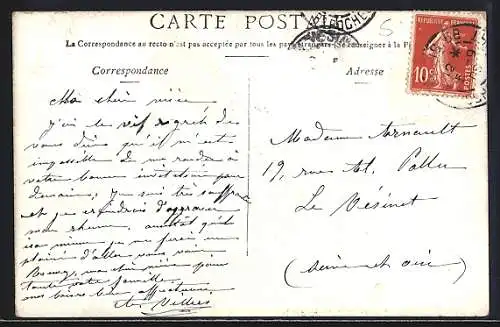 CARTE POSTALE
La Correspondance au recto n'est pas acceptée par tous les pays étrangers (Se renseigner à la P
Correspondance
Adresse
REPUBLIQUE FRANÇAISE
10c
POSTES
Ma chère nièce
J'ai le vif regret de
vous dire qu'il m'est
impossible de me rendre à
votre bonne invitation pour
demain, je suis très souffrante
et je craindrais d'aggraver
mon rhume, aussitôt qu'il
me ferai un
plaisir d'aller vous voir
ma chère nièce pour
toute votre famille
mes baisers bien affectueux
Madame Arnault
19, rue Al. Pallu
Le Vésinet
(Seine et Oise)